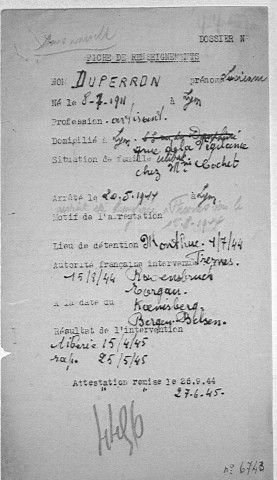 DOSSIER N
FICHE DE RENSEIGNEMENTS
NOM DUPERRON prénom Lucienne
Né le 8-7-1911 à Lyon
Profession artisant.
Domicilié à Lyon
rue de la Vigilance
Situation de famille célib.
chez Mme Cochet
Arrêté le 20-5-1944 à Lyon
Motif de l'arrestation
Lieu de détention Montluc. 4/7/44
Autorité française intervenue Fresnes.
15/8/44 Ravensbruck
Torgau.
A la date du Koenisberg.
Bergen-Belsen.
Résultat de l'intervention
libérée 15/4/45
rap. 25/5/45
Attestation remise le 26.9.44
27-6-45.
n° 6743